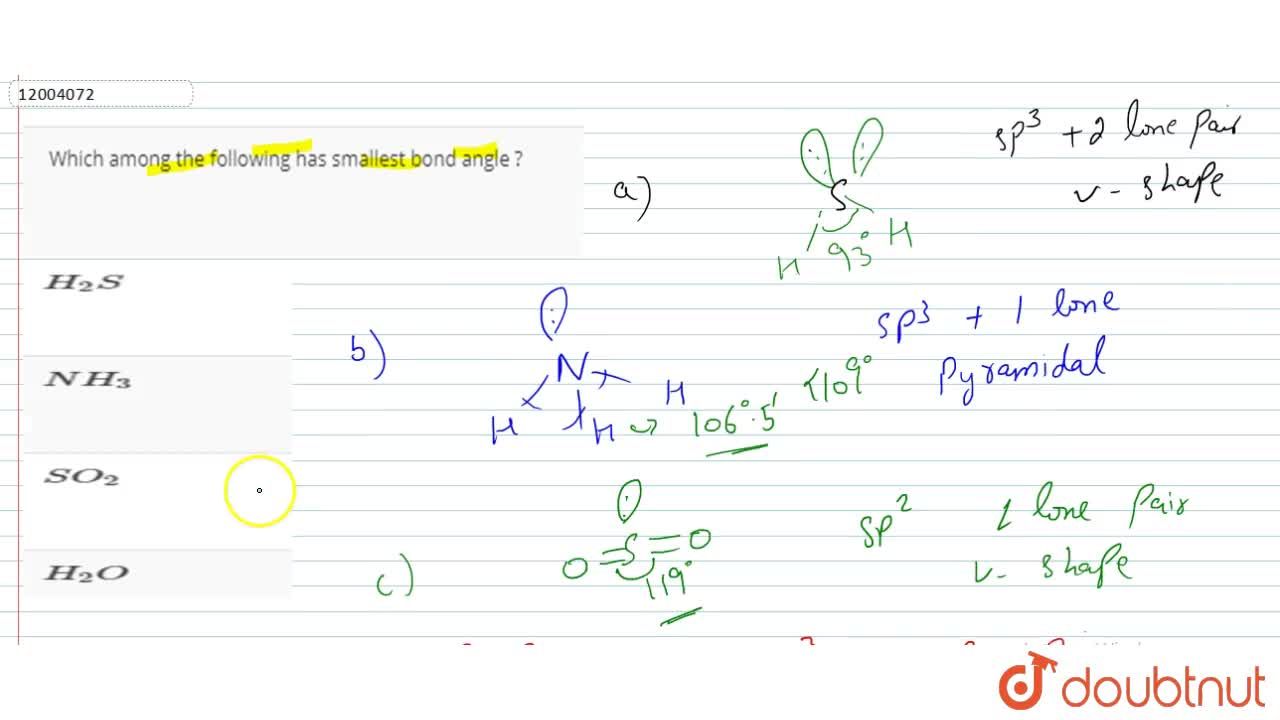 12004072
Which among the following has smallest bond angle ?
H₂S
NH₃
SO₂
H₂O
a)
S
H 93° H
sp³ + 2 lone pair
v - shape
b)
N
H H H
106°.5'
<109°
sp³ + 1 lone
Pyramidal
c)
O = S = O
119°
sp² 1 lone pair
v- shape
doubtnut